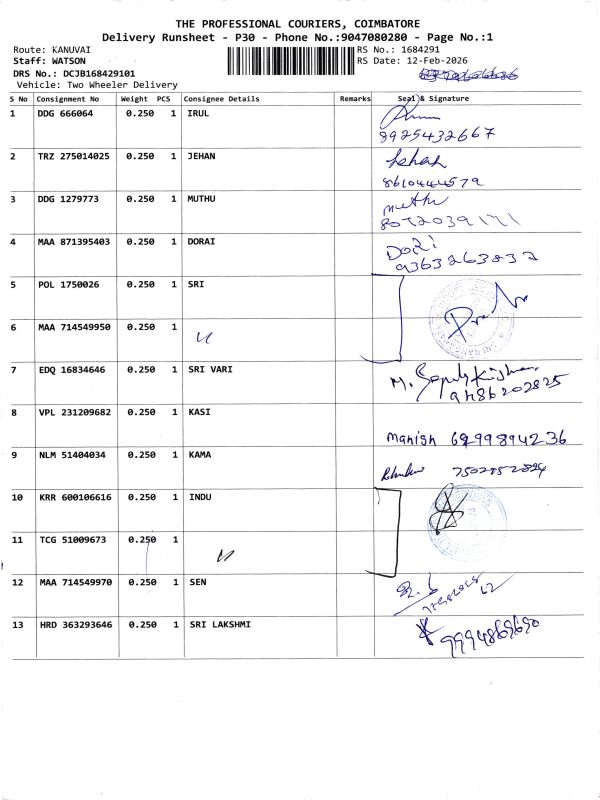 THE PROFESSIONAL COURIERS, COIMBATORE
Delivery Runsheet - P30 - Phone No.:9047080280 - Page No.:1
Route: KANUVAI
RS No.: 1684291
Staff: WATSON
RS Date: 12-Feb-2026
DRS No.: DCJB168429101
Vehicle: Two Wheeler Delivery
S No Consignment No Weight PCS Consignee Details Remarks Seal & Signature
1 DDG 666064 0.250 1 IRUL
8925432667
2 TRZ 275014025 0.250 1 JEHAN
8610444579
3 DDG 1279773 0.250 1 MUTHU muthu
4 MAA 871395403 0.250 1 DORAI DORi
9363263832
5 POL 1750026 0.250 1 SRI
6 MAA 714549950 0.250 1
7 EDQ 16834646 0.250 1 SRI VARI M.
9486202825
8 VPL 231209682 0.250 1 KASI
Manish 6999894236
9 NLM 51404034 0.250 1 KAMA
10 KRR 600106616 0.250 1 INDU
11 TCG 51009673 0.250 1
12 MAA 714549970 0.250 1 SEN
13 HRD 363293646 0.250 1 SRI LAKSHMI